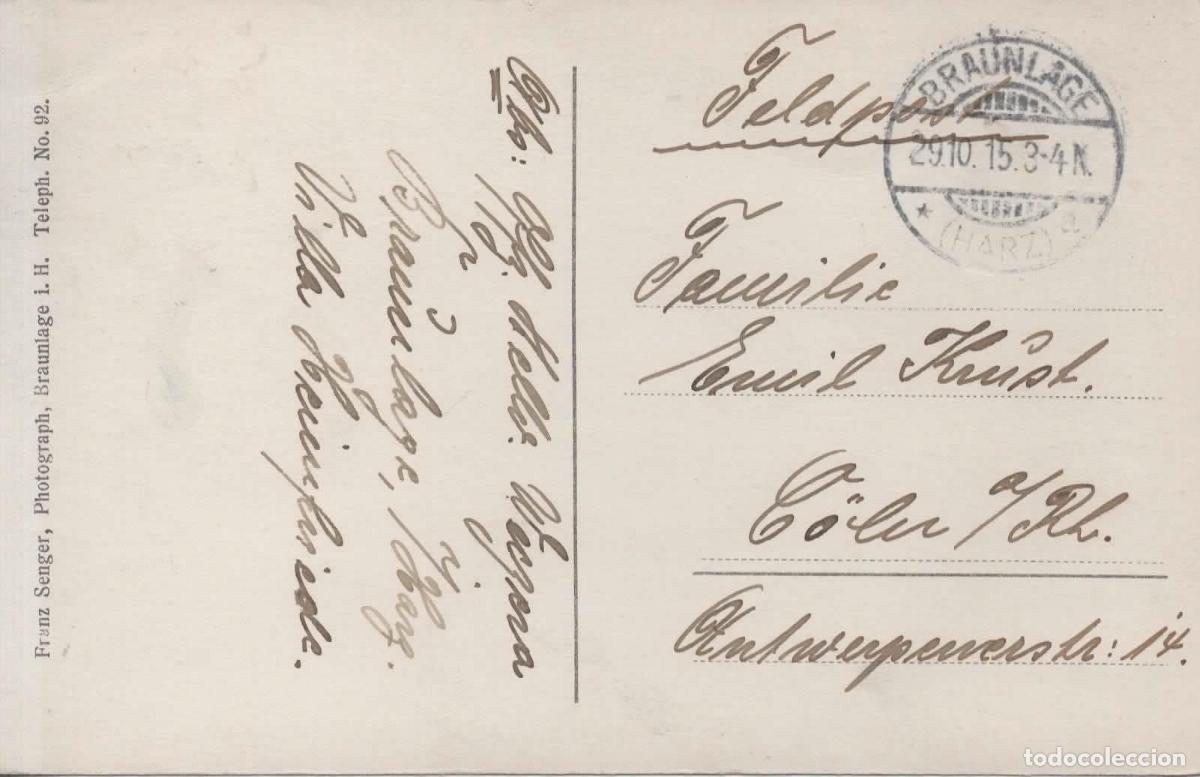 Franz Senger, Photograph, Braunlage i. H. Teleph. No. 92.
Abs:
Braunlage, Harz.
Villa
Feldpost
BRAUNLAGE
29.10.15.3-4N.
* (HARZ) a
Familie
Emil Krüst.
Cöln a/Rh.
Antwerpenerstr: 14.
todocoleccion